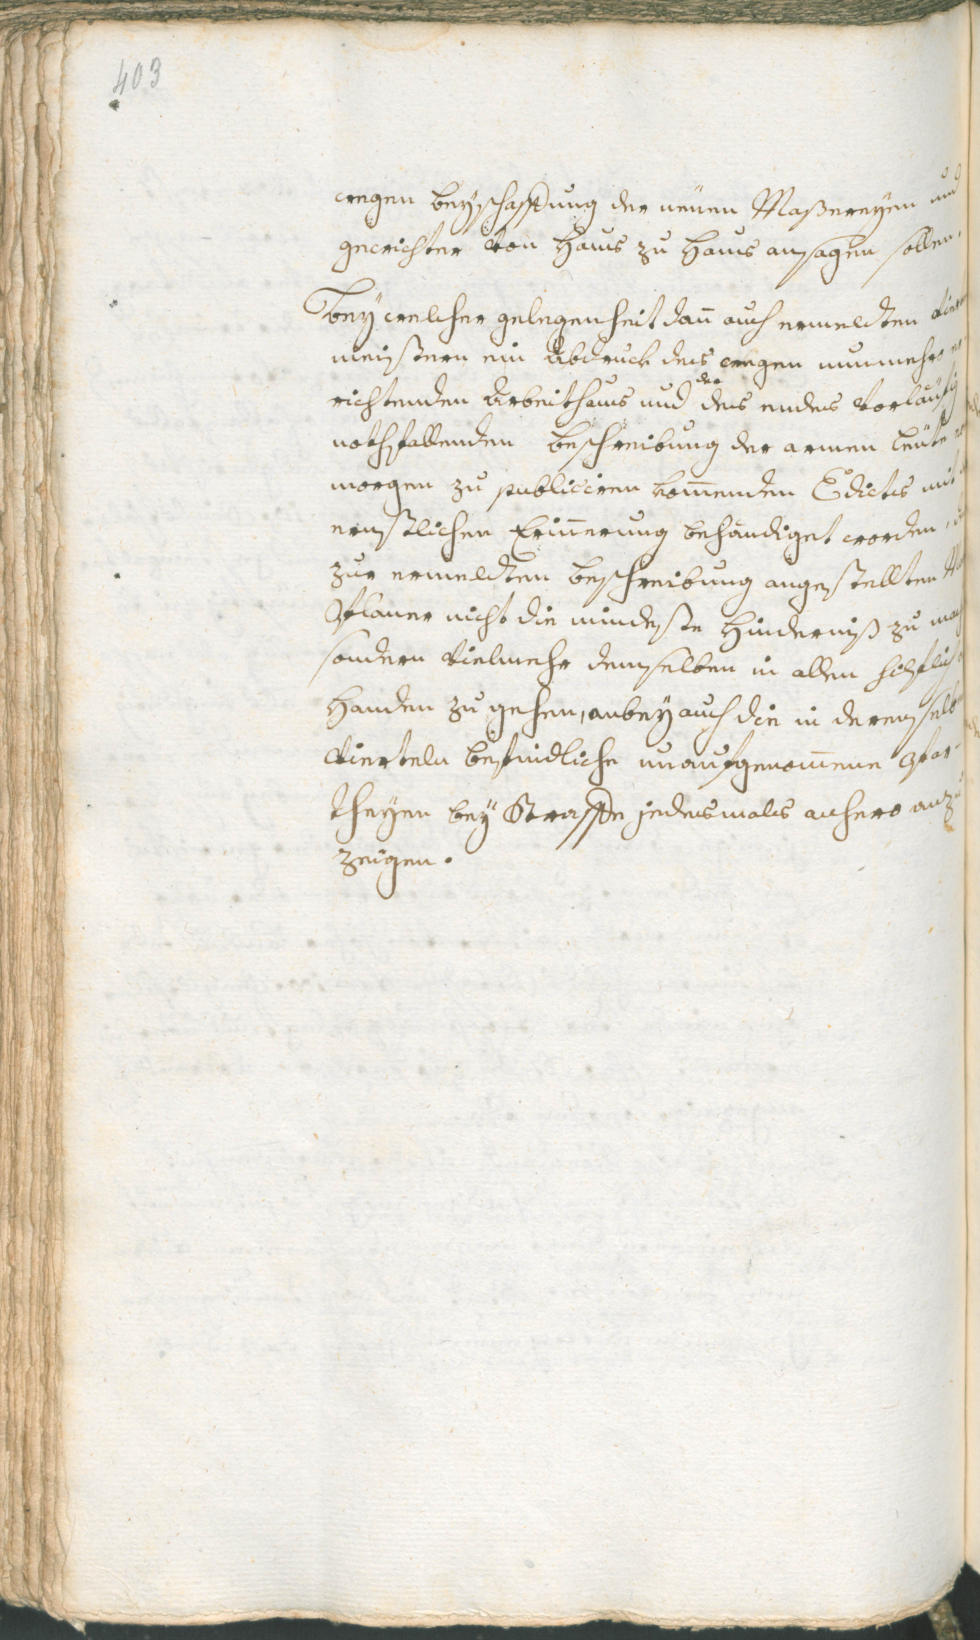 403
wegen beyschaffung der neüen Maßereyen und
gewichter von Haus zu Haus ansagen sollen.
Bey welcher gelegenheit dañ auch ermeldten
meistern ein Abdruck des wegen nunmehro
richtenden Arbeithaus und der des endes vorläufig
nothfallenden beschreibung der armen leüte
morgen zu publiciren kom̄enden Edicts mit
ernstlicher Erin̄erung behändiget worden,
zur ermeldten beschreibung angestellten
nicht die mindeste Hinderniß zu
sondern vielmehr demselben in allen
Handen zu gehen, anbey auch die in deren
vierteln befindliche unaufgenom̄ene Par-
theyen bey Straffe jedesmals anhero
zeigen.